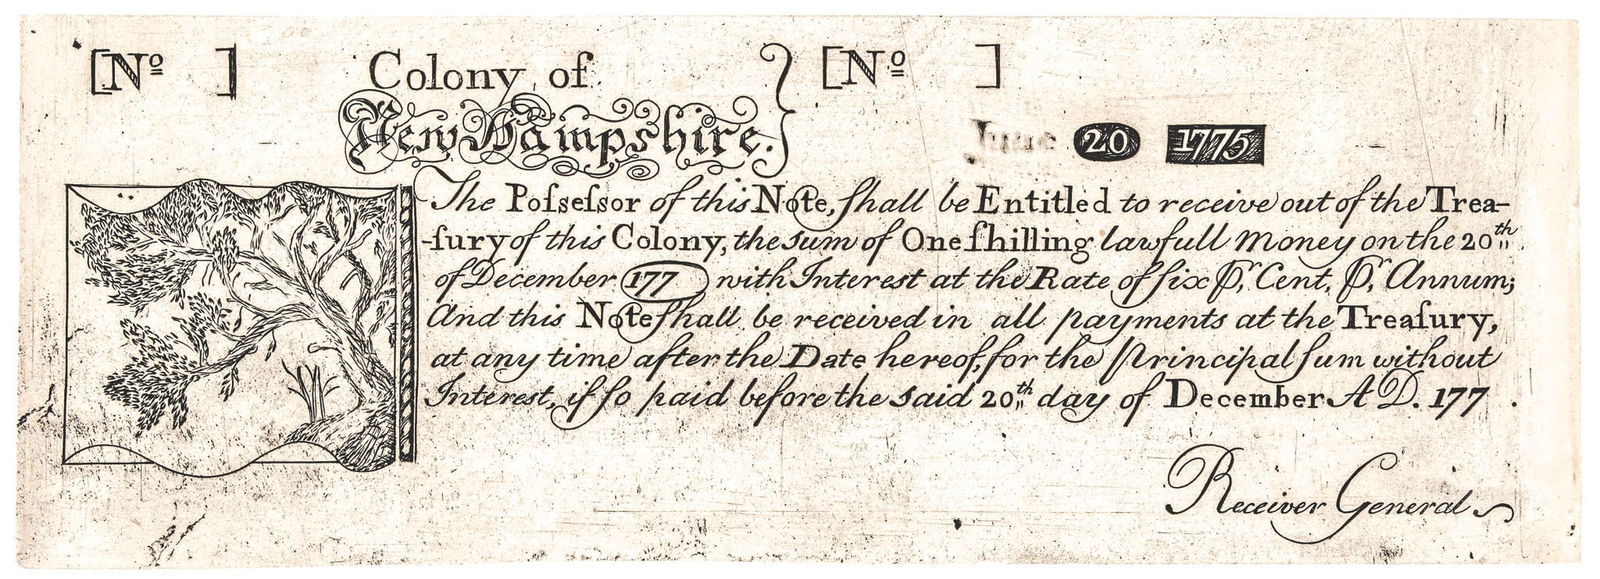 [Nº ] Colony of [Nº ]
New Hampshire.
June 20 1775
The Poſseſsor of this Note, ſhall be Entitled to receive out of the Trea-
-ſury of this Colony, the sum of One ſhilling lawfull Money on the 20th
of December 177 with Interest at the Rate of ſix Pr. Cent, Pr. Annum;
And this Note ſhall be received in all payments at the Treaſury,
at any time after the Date hereof, for the Principal ſum without
Interest, if ſo paid before the said 20th day of December A D. 177 .
Receiver General